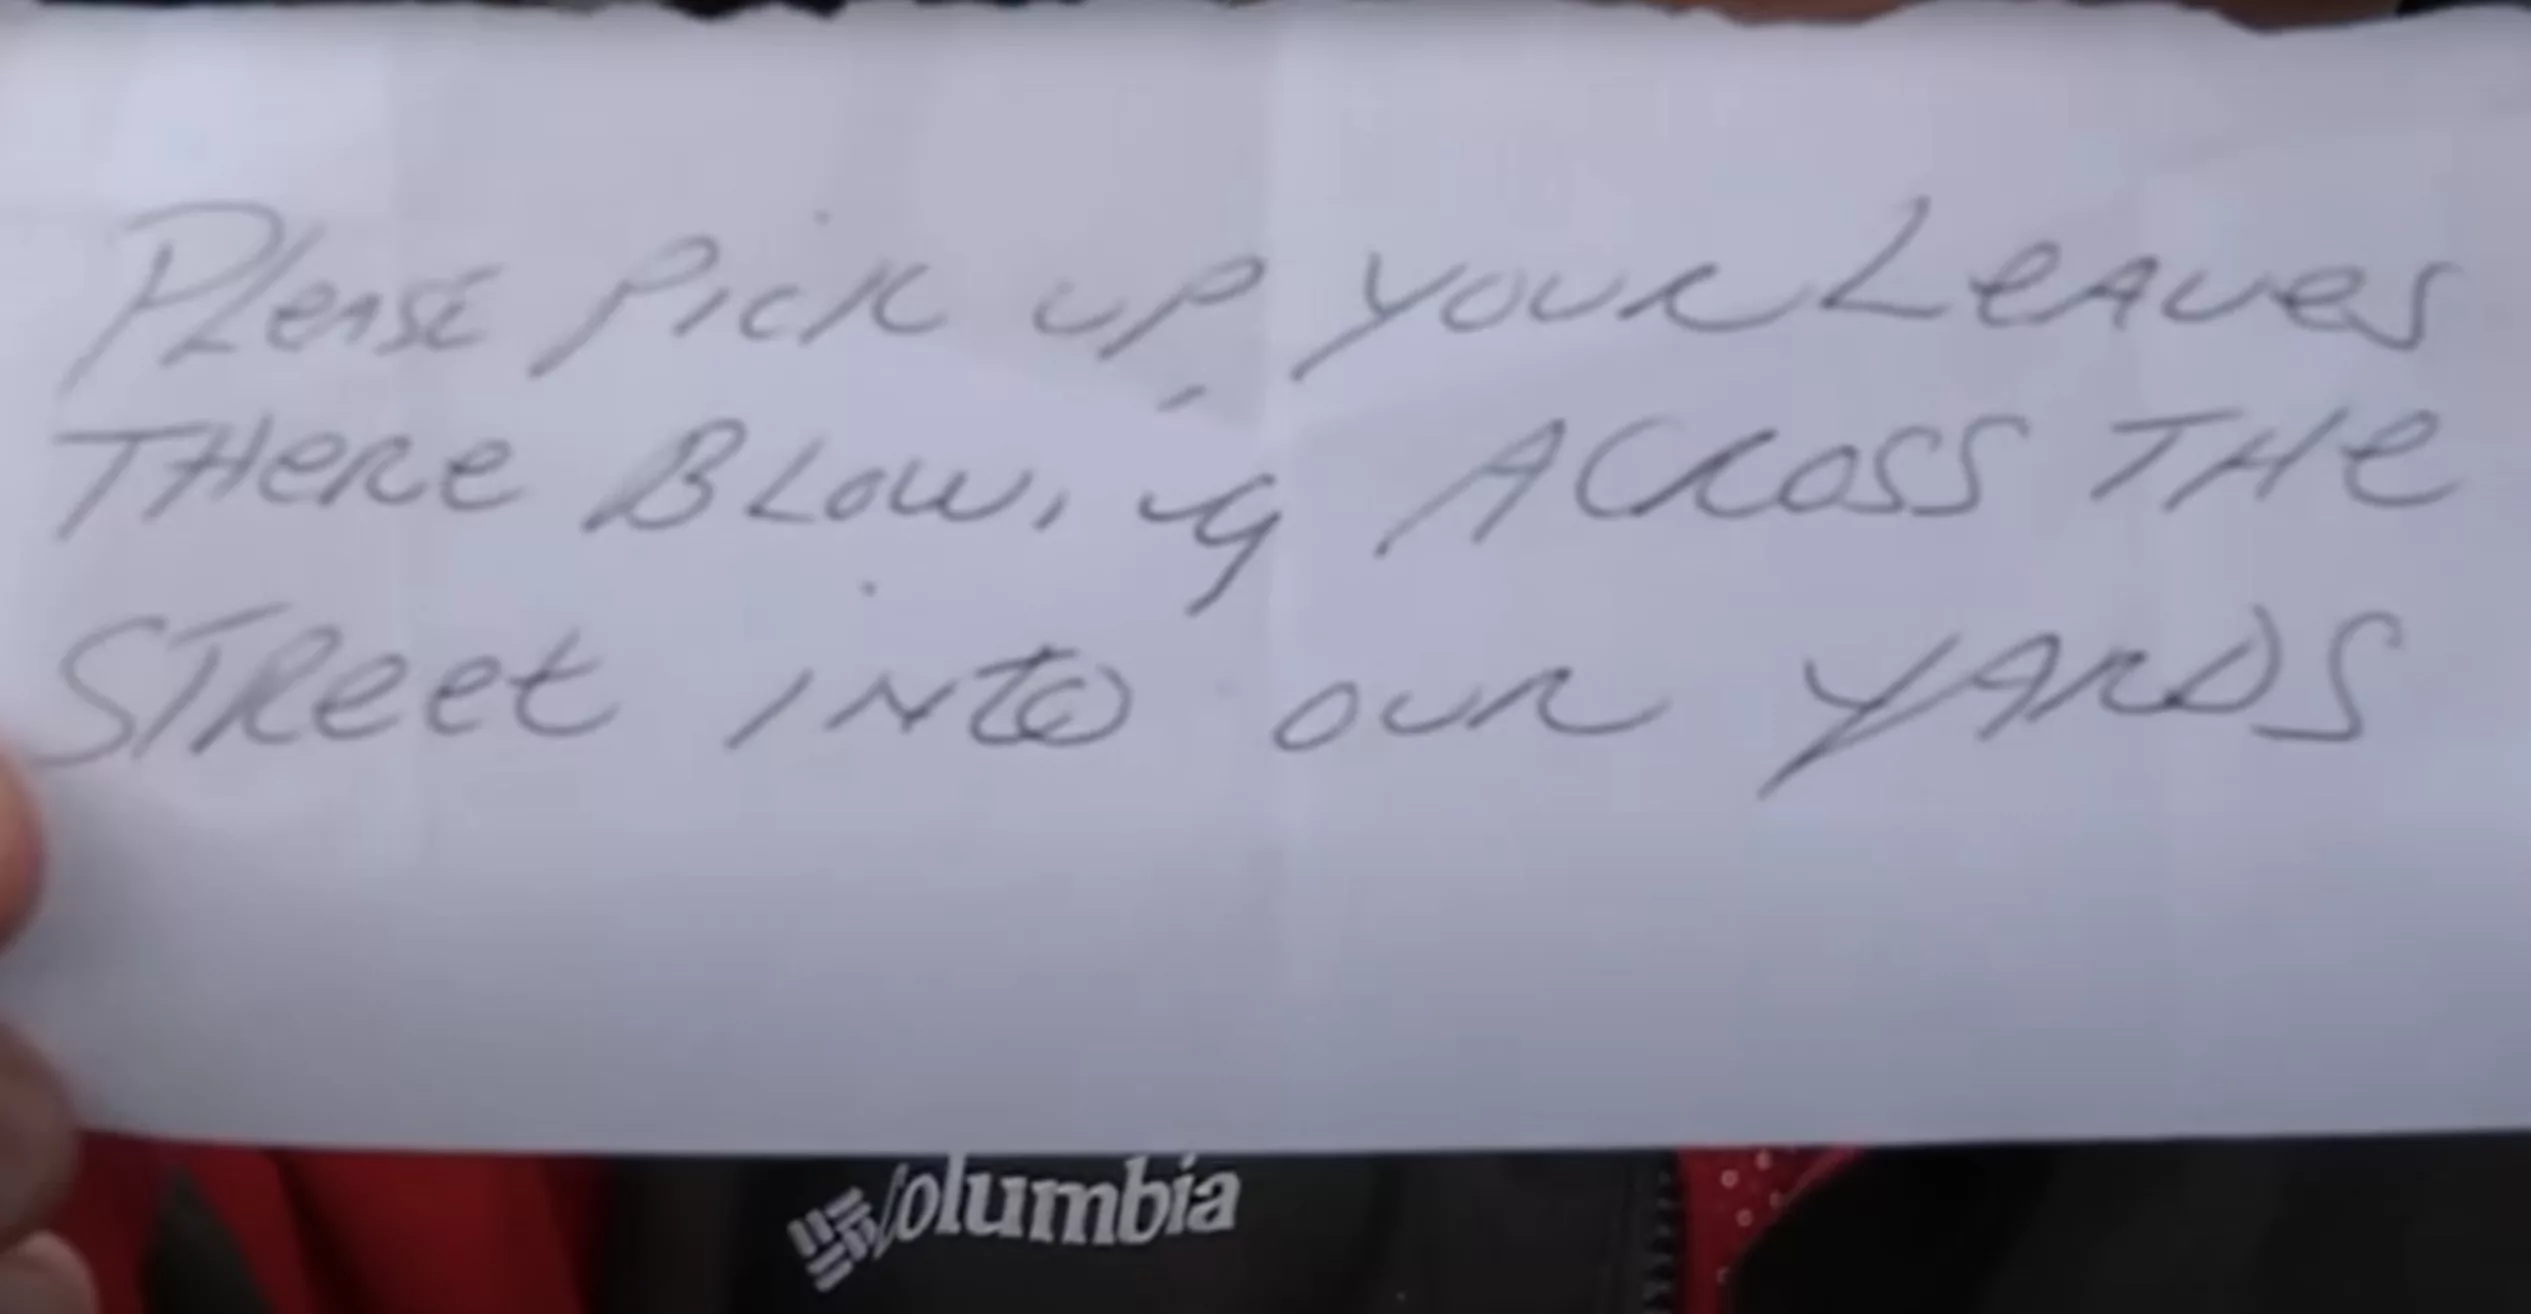 Please Pick up your Leaves
THere BLowing ACROSS THe
STReet INto our YARDS
Columbia